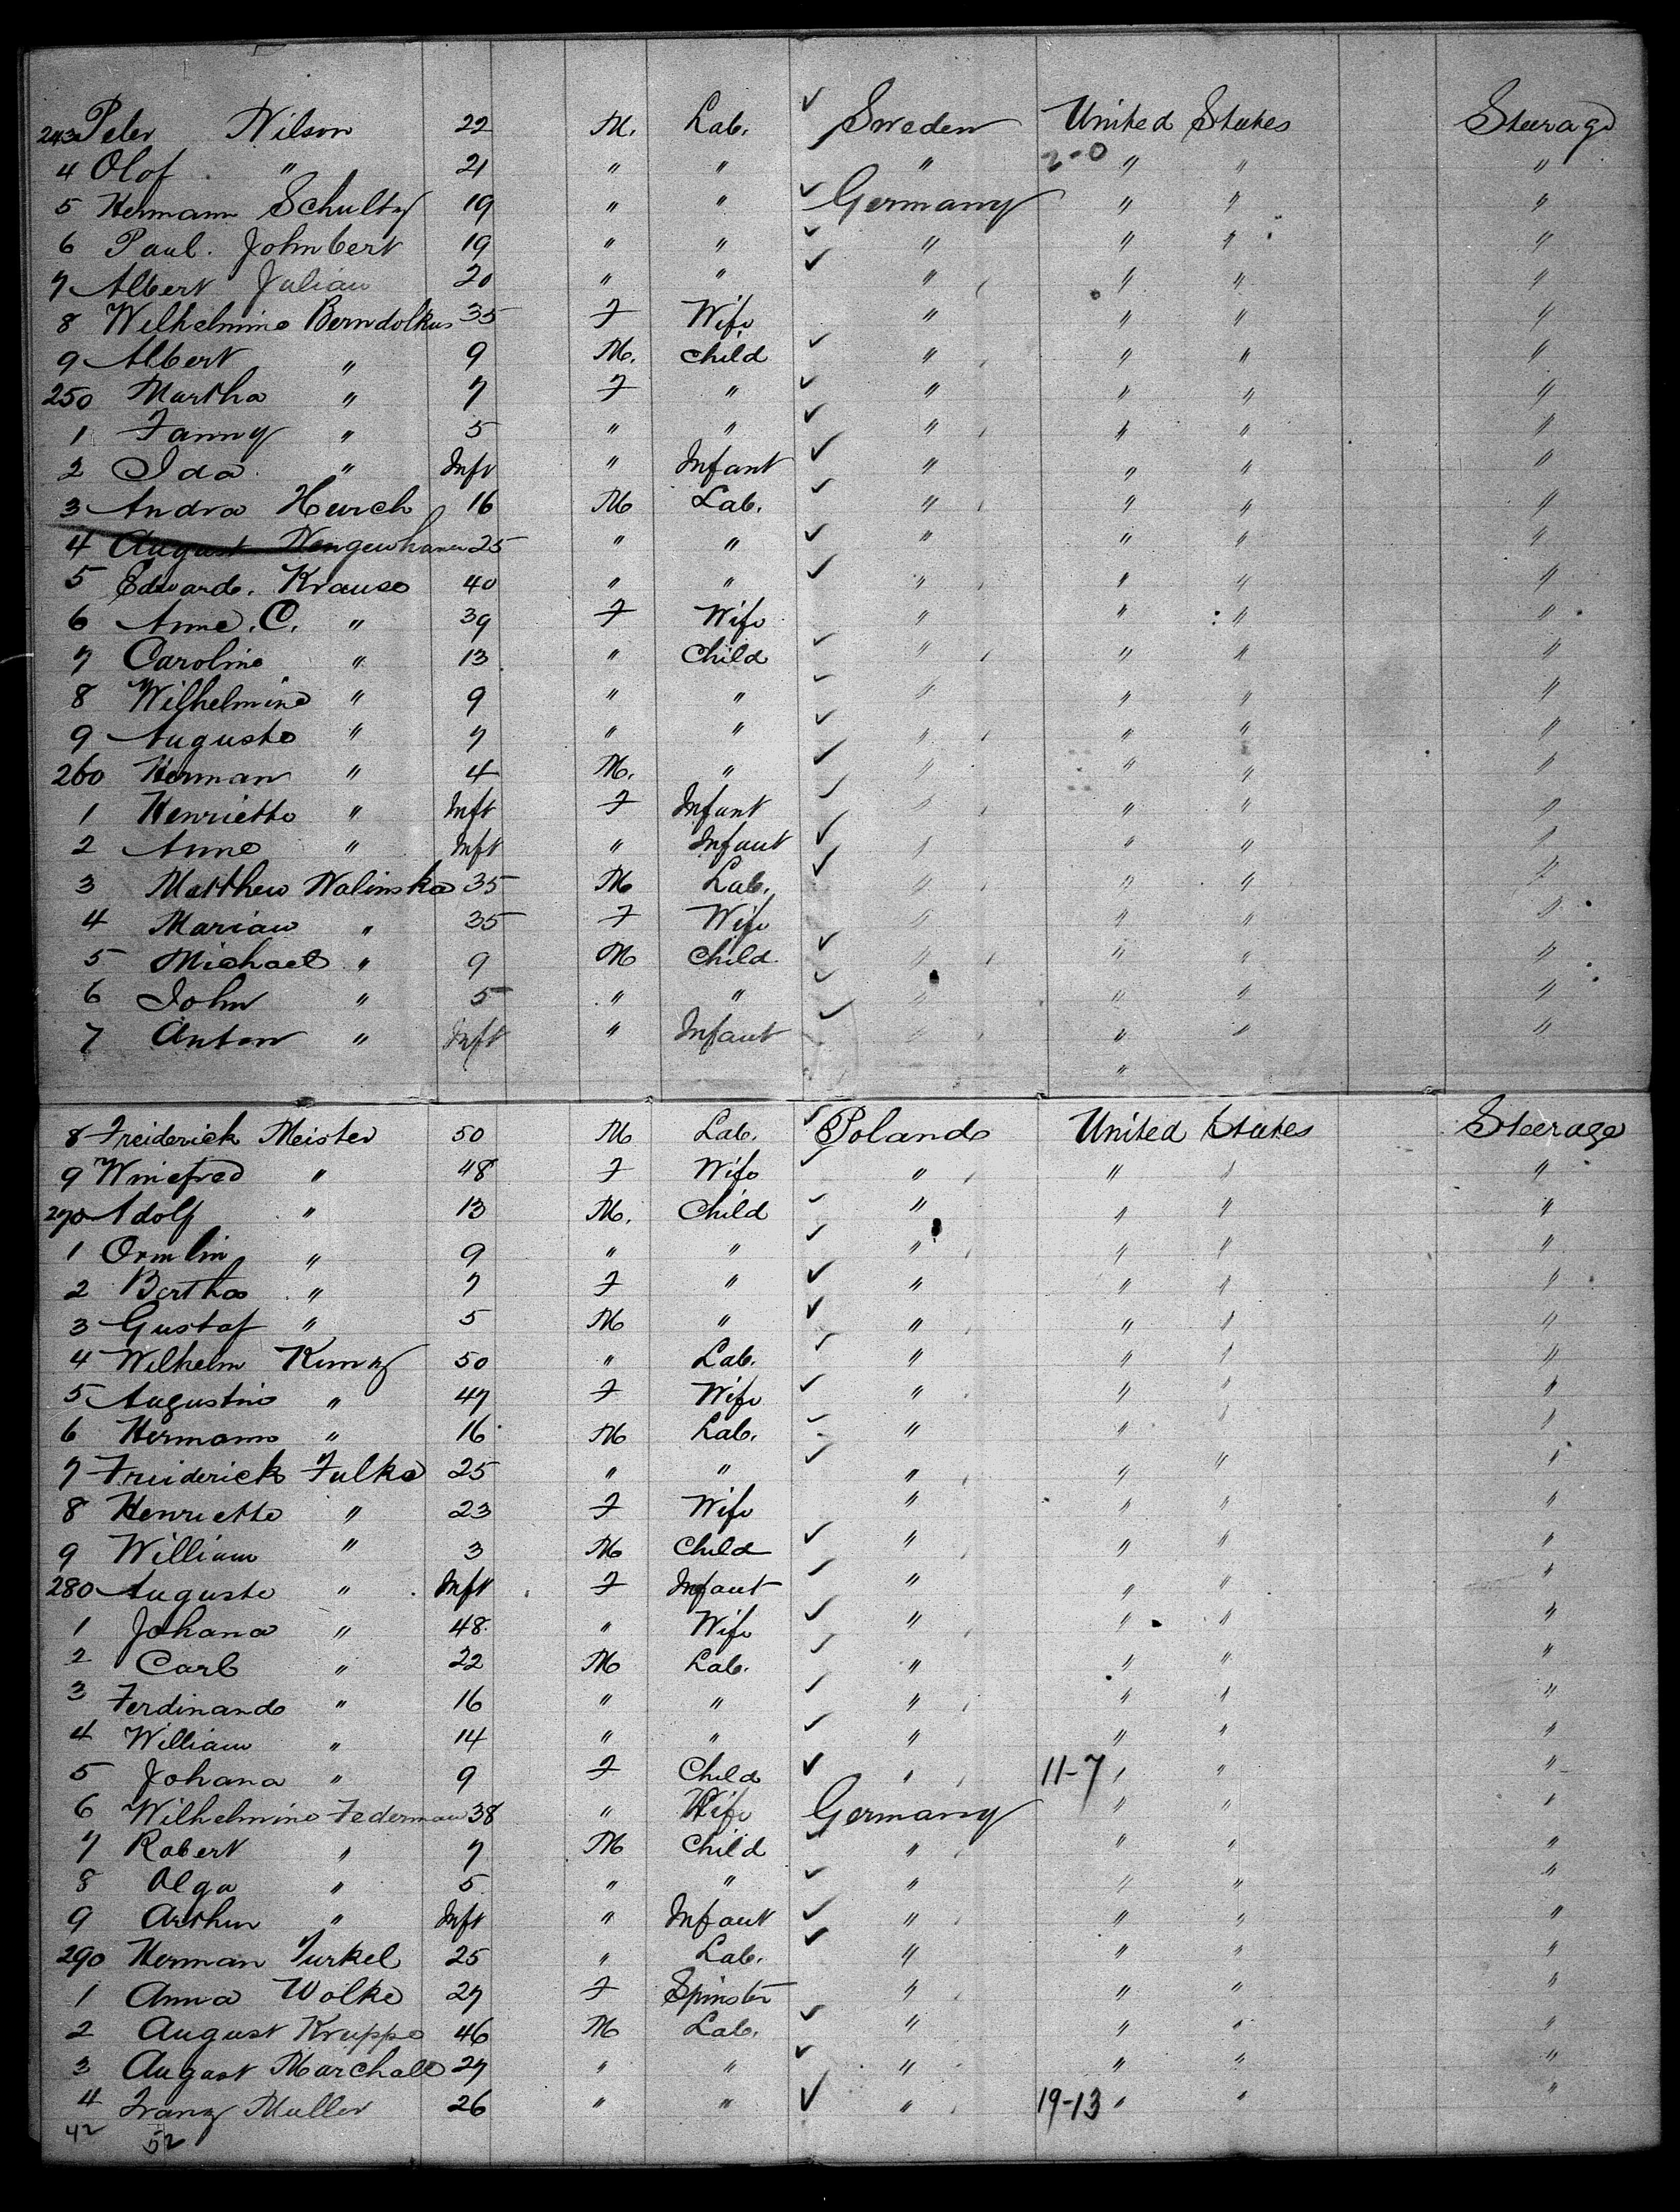 243 Peter Nilson 22 M. Lab. ✓ Sweden United States Steerage
4 Olof " 21 " " " 2-0 " " "
5 Hermann Schultz 19 " " ✓ Germany " " "
6 Paul. Johnbert 19 " " ✓ " " " "
7 Albert Julian 20 " " ✓ " " " "
8 Wilhelmine Berndolkus 35 F Wife " " " "
9 Albert " 9 M. Child ✓ " " " "
250 Martha " 7 F " ✓ " " " "
1 Fanny " 5 " " ✓ " " " "
2 Ida " Inft " Infant ✓ " " " "
3 Andra Hurch 16 M Lab. ✓ " " " "
4 August 25 " " ✓ " " " "
5 Edward. Krause 40 " " ✓ " " " "
6 Anne. C. " 39 F Wife " " " "
7 Caroline " 13 " Child ✓ " " " "
8 Wilhelmine " 9 " " ✓ " " " "
9 Auguste " 7 " " ✓ " " " "
260 Herman " 4 M. " ✓ " " " "
1 Henriette " Inft F Infant ✓ " " " "
2 Anne " Inft " Infant ✓ " " " "
3 Matthew Nalinska 35 M Lab. ✓ " " " "
4 Marian " 35 F Wife " " " "
5 Michael " 9 M Child ✓ " " " "
6 John " 5 " " ✓ " " " "
7 Anton " Inft " Infant ✓ " " " "
"
8 Freiderick Meister 50 M Lab. ✓ Poland United States Steerage
9 Winefred " 48 F Wife ✓ " " " "
270 Adolf " 13 M. Child ✓ " " " "
1 Ormlin " 9 " " ✓ " " " "
2 Bertha " 7 F " ✓ " " " "
3 Gustaf " 5 M " ✓ " " " "
4 Wilhelm 50 " Lab. ✓ " " " "
5 Augustine " 47 F Wife ✓ " " " "
6 Hermann " 16 M Lab. ✓ " " " "
7 Freiderick Fulke 25 " " ✓ " " " "
8 Henriette " 23 F Wife " " " "
9 William " 3 M Child ✓ " " " "
280 Auguste " Inft F Infant ✓ " " " "
1 Johana " 48 " Wife ✓ " " " "
2 Carl " 22 M Lab. ✓ " " " "
3 Ferdinand " 16 " " ✓ " " " "
4 William " 14 " " ✓ " " " "
5 Johana " 9 F Child ✓ " 11-7 " " "
6 Wilhelmine Federman 38 " Wife Germany " " "
7 Robert " 7 M Child ✓ " " " "
8 Olga " 5 " " ✓ " " " "
9 Arthur " Inft " Infant ✓ " " " "
290 Herman Turkel 25 " Lab. ✓ " " " "
1 Anna Wolke 27 F Spinster " " " "
2 August Kruppe 46 M Lab. ✓ " " " "
3 August Marchall 27 " " ✓ " " " "
4 Franz Muller 26 " " ✓ " 19-13 " " "
42 52